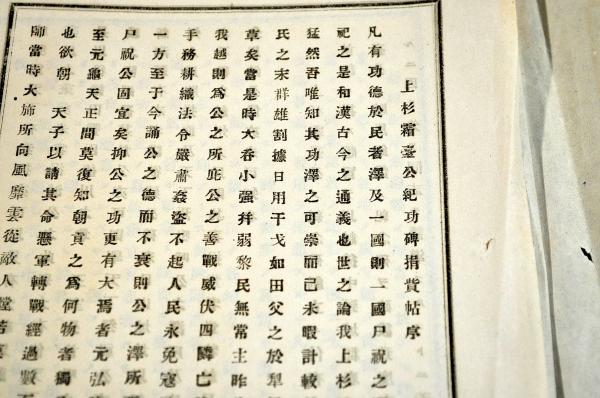 上杉霜臺公紀功碑捐貲帖序
凡有功德於民者澤及一國則一國尸祝之
祀之是和漢古今之通義也世之論我上杉
猛然吾唯知其功澤之可崇而已未暇計較
氏之末群雄割據日用干戈如田父之於犁
草矣當是時大吞小强幷弱黎民無常主昨
我越則爲公之所庇公之善戰威伏四隣亡
手務耕織法令嚴肅姦盜不起人民永免寇
一方至于今誦公之德而不衰則公之澤所
尸祝公固宜矣抑公之功更有大焉者元弘
至元龜天正間莫復知朝貢之爲何物者獨
也欲朝　天子以請其命懸軍轉戰經過數百
師當時大旆所向風靡雲從敵人